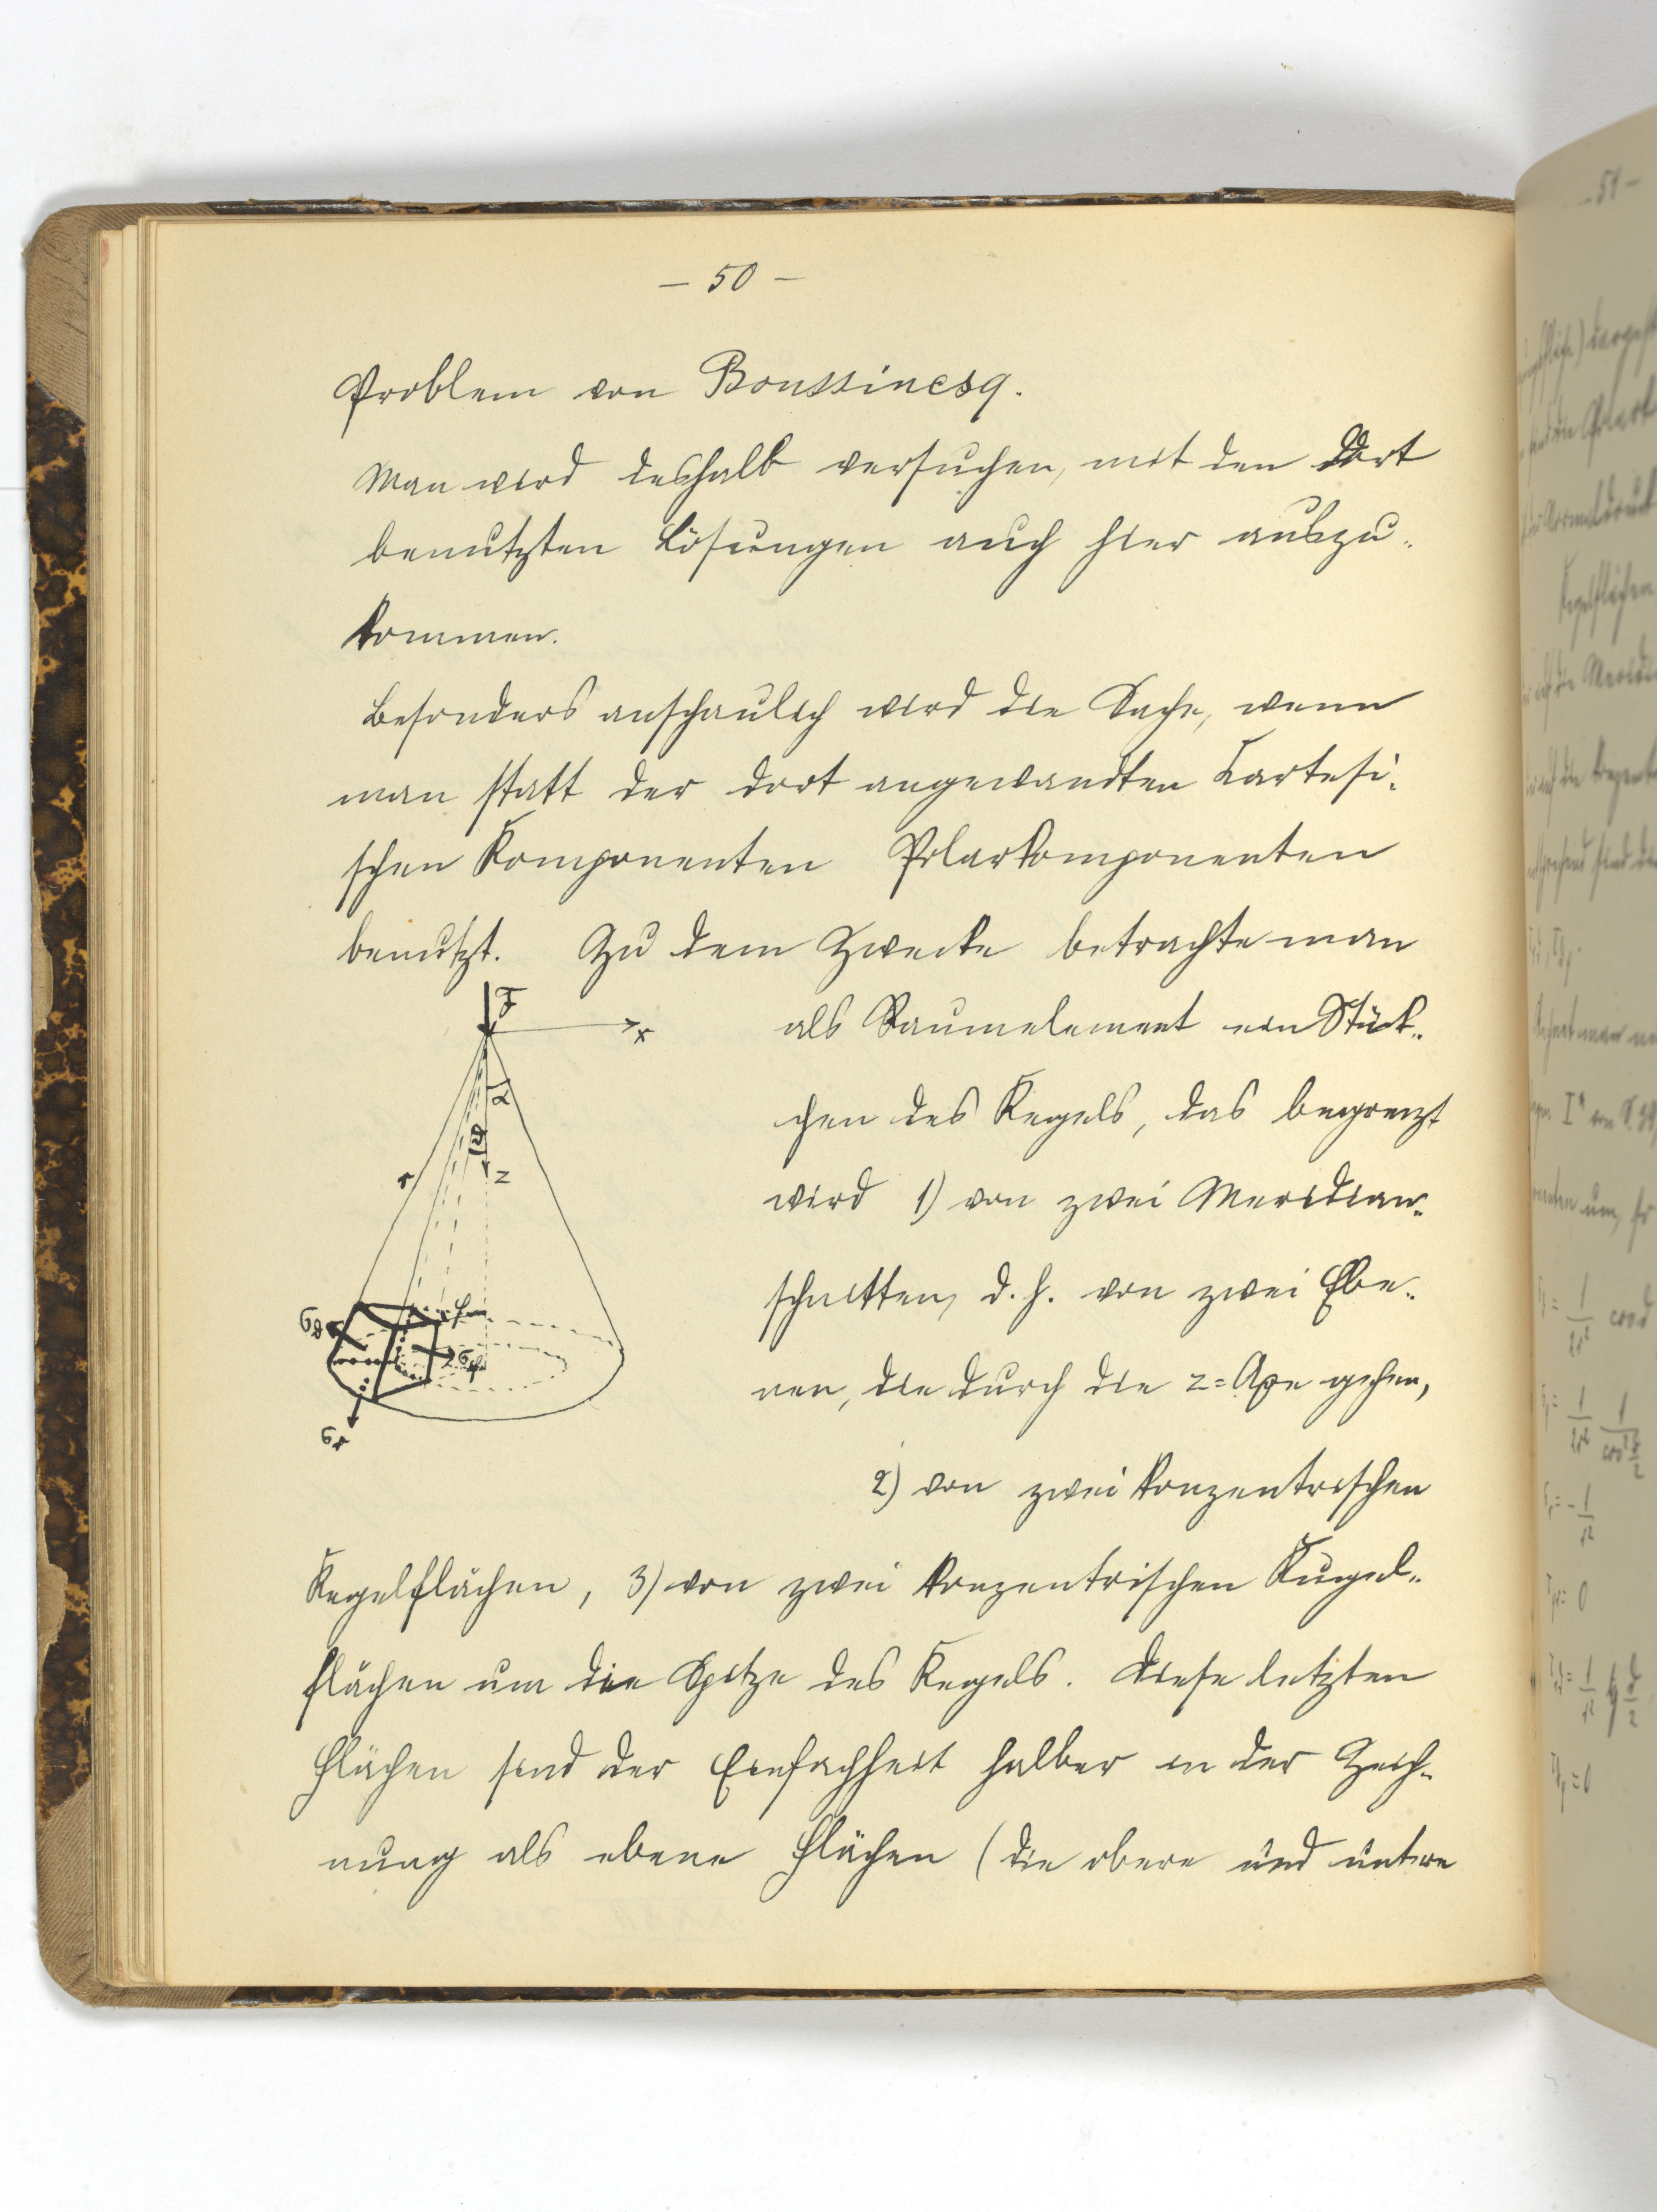 – 50 –
Problem von Boussinesq.
Man wird deshalb versuchen, mit den dort
benutzten Lösungen auch hier auszu-
kommen.
Besonders anschaulich wird die Sache, wenn
man statt der dort angewandten Kartesi-
schen Komponenten Polarkomponenten
benutzt. Zu dem Zwecke betrachte man
als Raumelement ein Stück-
chen des Kegels, das begrenzt
wird 1) von zwei Meridian-
schnitten, d. h. von zwei Ebe-
nen, die durch die z=Axe gehen,
2) von zwei konzentrischen
Kegelflächen, 3) von zwei konzentrischen Kugel-
flächen um die Spitze des Kegels. Diese letzten
Flächen sind der Einfachheit halber in der Zeich-
nung als ebene Flächen (die obere und untere
F
x
α
ϑ
z
r
σϑ
φ
σφ
σr
– 51 –